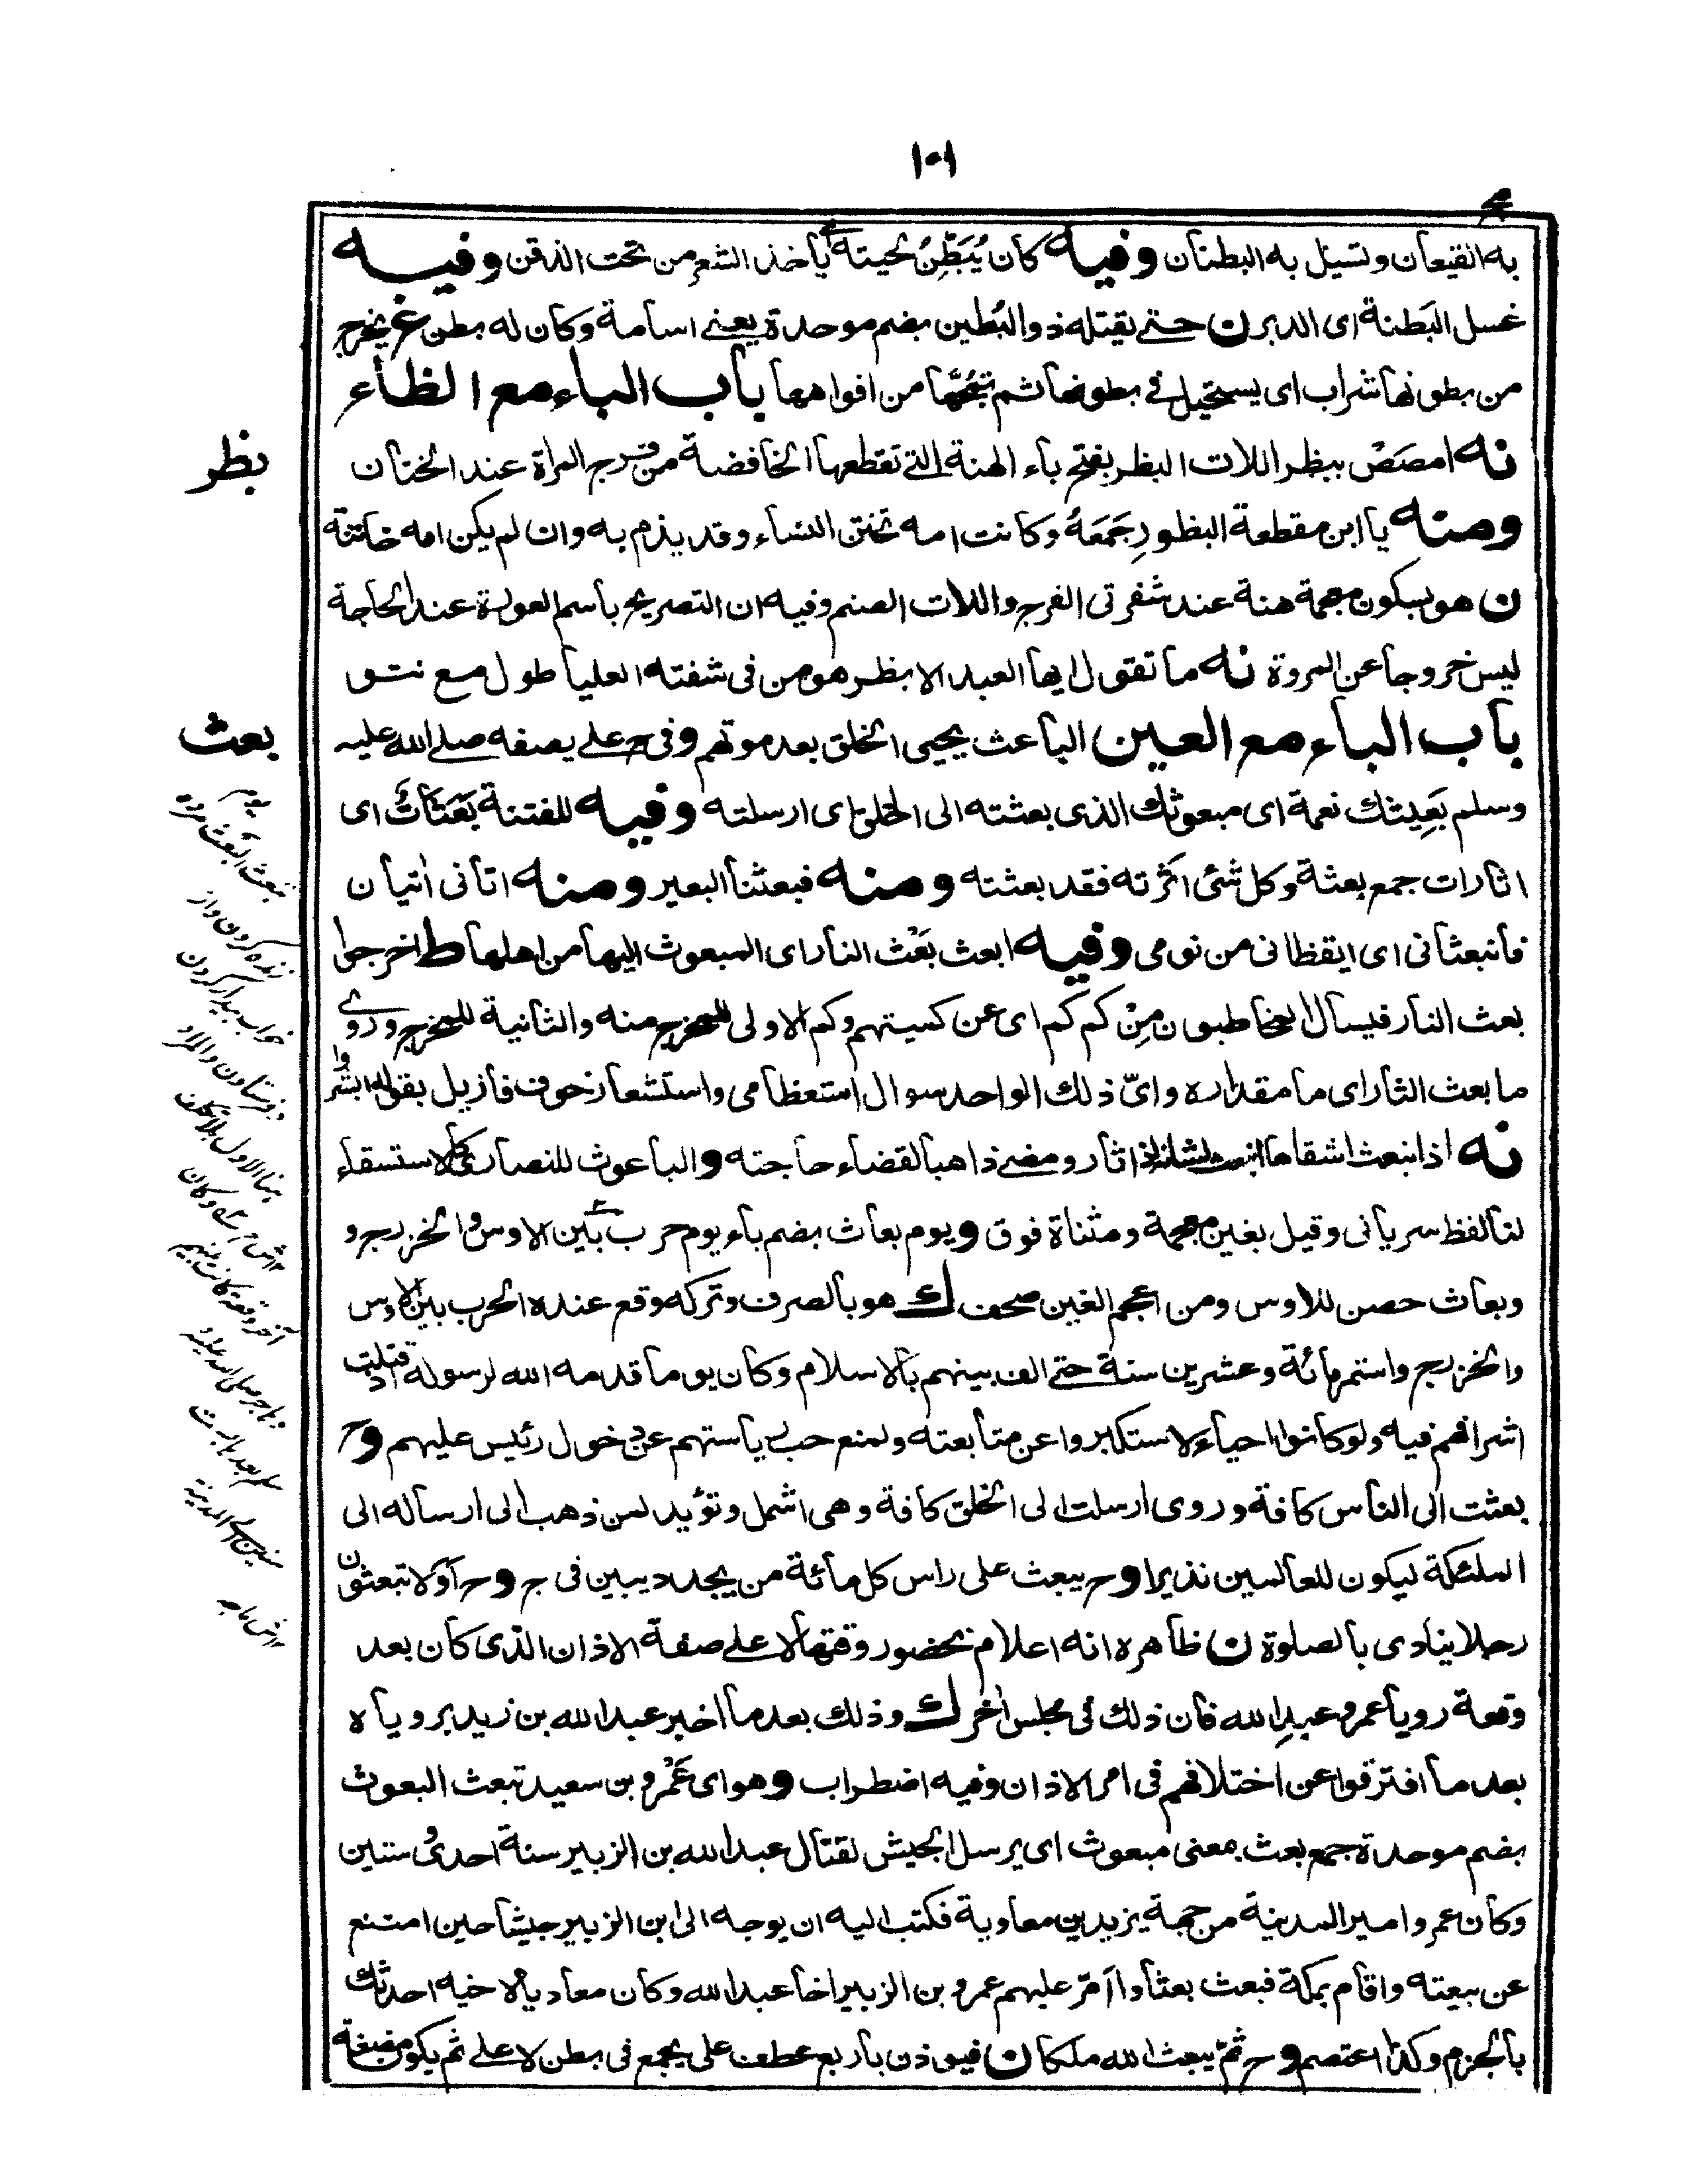 ١٠١
به القيعان وتسيل به البطنان وفيه كان يُبَطِّنُ لحيته أي يأخذ الشعر من تحت الذقن وفيه
غسل البَطنة اى الدبر ن حتے يقتله ذو البُطين بضم موحدة يعنے اسامة وكان له بطن غ يخرج
من بطونها شراب اى يستحيل فے بطونها ثم تَمُجُّها من افواهها باب الباء مع الظاء
نه امصَصْ ببظر اللات البظر بفتح باء الهنة التے تقطعها الخافضة من فرج المراة عند الختان
ومنه يا ابن مقطعة البظور جَمَعَهُ وكانت امه تختن النساء وقد يذم به وان لم يكن امه خاتنة
ن هو بسكون معجمة هنة عند شفرتى الفرج واللات الصنم وفيه ان التصريح باسم العورة عند الحاجة
ليس خروجا عن المروة نه ما تقول ايها العبد الابظر هو من فى شفته العليا طول مع نتو
باب الباء مع العين الباعث يحيى الخلق بعد موتهم وفى ح علے يصفه صلے الله عليه
وسلم بَعِيثك نعمة اى مبعوثك الذى بعثته الى الخلق اى ارسلته وفيه للفتنة بَعَثَاتٌ اى
اثارات جمع بعثة وكل شئ اثرته فقد بعثته ومنه فبعثنا البعير ومنه اتانى اتيان
فانبعثانى اى ايقظانى من نومى وفيه ابعث بَعْث النار اى المبعوث اليها من اهلها ط اخرجوا
بعث النار فيسأل المخاطبون مِنْ كم كم اى عن كميتهم وكم الاولى للمخرج منه والثانية للمخرج وروے
ما بعث النار اى ما مقداره واىّ ذلك الواحد سوال استعظامى واستشعار خوف فازيل بقوله ابشروا
نه اذ انبعث اشقاها انبعث لشانه اذا ثار ومضے ذاهبا لقضاء حاجته والباعوث للنصارى كالاستسقاء
لنا لفظ سريانى وقيل بغين معجمة ومثناة فوق ويوم بعاث بضم باء يوم حرب بين الاوس والخزرج و
وبعاث حصن للاوس ومن اعجم الغين صحف ك هو بالصرف وتركه وقع عنده الحرب بين الاوس
والخزرج واستمر مائة وعشرين سنة حتے الف بينهم بالاسلام وكان يوما قدمه الله لرسوله اذ قتلت
اشرافهم فيه ولو كانوا احياء لاستكبروا عن متابعته ولمنع حب رياستهم عن دخول رئيس عليهم وح
بعثت الى الناس كافة وروى ارسلت الى الخلق كافة وهى اشمل وتؤيد لمن ذهب الى ارساله الى
الملئكة ليكون للعالمين نذيرا وح يبعث على راس كل مائة من يجدد يبين فى ج وح اَوَلا تبعثون
رجلا ينادى بالصلوة ن ظاهره انه اعلام بحضور وقتها لا علے صفة الاذان الذى كان بعد
وقعة رويا عمر وعبد الله فان ذلك فى مجلس آخر ك وذلك بعد ما اخبر عبد الله بن زيد برويأه
بعد ما افترقوا عن اختلافهم فى امر الاذان وفيه اضطراب وهو اى عَمْرو بن سعيد تبعث البعوث
بضم موحدة جمع بعث بمعنى مبعوث اى يرسل الجيش لقتال عبد الله بن الزبير سنة احدى وستين
وكان عمرو امير المدينة من جهة يزيد بن معاوية فكتب اليه ان يوجه الى ابن الزبير جيشا حين امتنع
عن بيعته واقام بمكة فبعث بعثا وامّر عليهم عمرو بن الزبير اخا عبد الله وكان معاديا لاخيه احدثك
بالجزم وكذا اعتصم وح ثم يبعث الله ملكا ن فيوذن باربع عطف على يجمع فى بطن لا علے ثم يكون مضغة
بظر
بعث